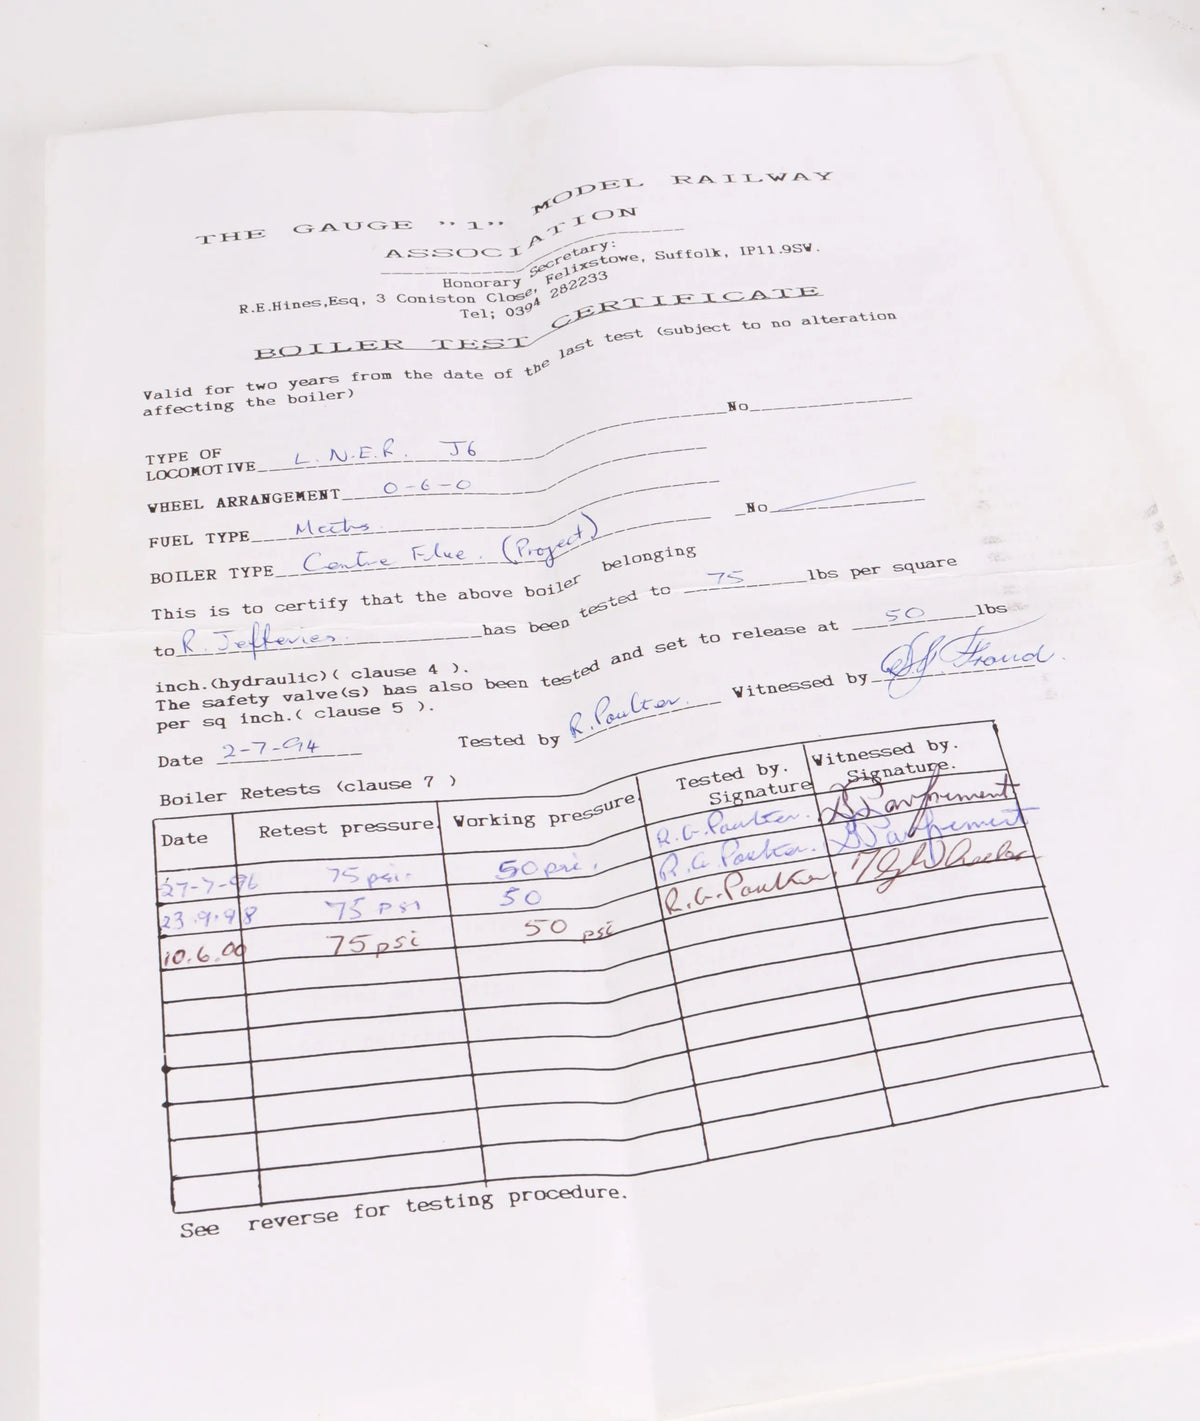 THE GAUGE "1" MODEL RAILWAY
ASSOCIATION
Honorary Secretary:
R.E.Hines,Esq, 3 Coniston Close, Felixstowe, Suffolk, IP11.9SW.
Tel; 0394 282233
BOILER TEST CERTIFICATE
Valid for two years from the date of the last test (subject to no alteration
affecting the boiler)
TYPE OF
LOCOMOTIVE L.N.E.R. J6 No
WHEEL ARRANGEMENT 0-6-0
FUEL TYPE Meths
BOILER TYPE Centre Flue. (Project) No
This is to certify that the above boiler belonging
to R. Jefferies. has been tested to 75 lbs per square
inch.(hydraulic)( clause 4 ).
The safety valve(s) has also been tested and set to release at 50 lbs
per sq inch.( clause 5 ).
Date 2-7-94 Tested by R. Poulter. Witnessed by
Boiler Retests (clause 7 )
Date Retest pressure Working pressure Tested by. Signature Witnessed by. Signature.
27-7-96 75 psi. 50 psi. R.G. Poulter.
23.9.98 75 PSI 50 R.G. Poulter.
10.6.00 75 psi 50 psi R.G. Poulter.
See reverse for testing procedure.